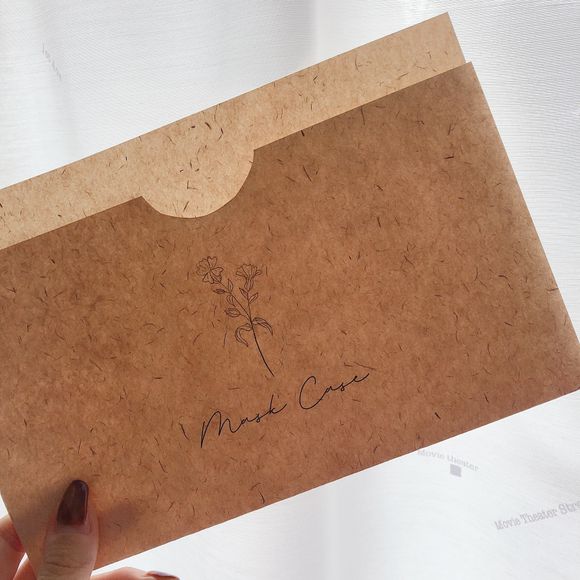 Mask Case
Movie theater
Movie Theater Str